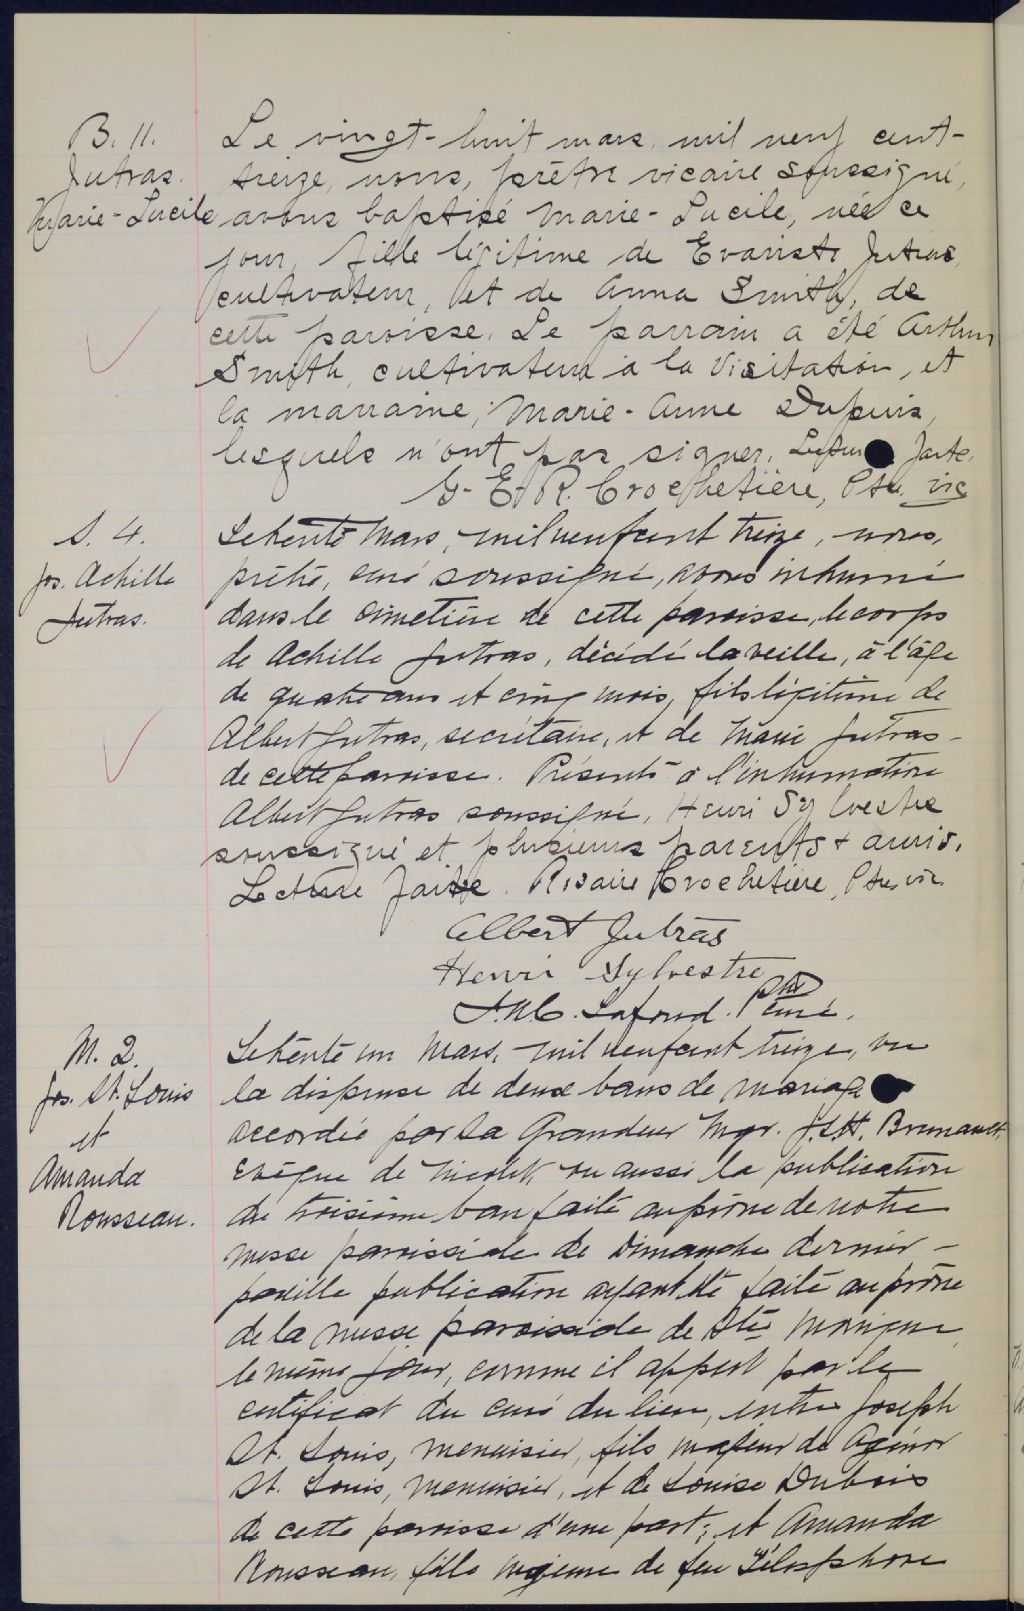 B. 11.
Jutras.
Marie-Lucile
Le vingt-huit mars, mil neuf cent-
treize, nous, prêtre vicaire soussigné,
avons baptisé Marie-Lucile, née ce
jour, fille légitime de Evariste Jutras,
cultivateur, et de Anna Smith, de
cette paroisse. Le parrain a été Arthur
Smith, cultivateur à la Visitation, et
la marraine, Marie-Anne Dupuis,
lesquels n'ont pas signer. Lecture faite.
G-E. R. Crochetière, Ptre. vic
S. 4.
Jos. Achille
Jutras.
Le trente Mars, mil neuf cent treize, nous,
prêtre, curé soussigné, avons inhumé
dans le cimetière de cette paroisse, le corps
de Achille Jutras, décédé la veille, à l'âge
de quatre ans et cinq mois, fils légitime de
Albert Jutras, secrétaire, et de Marie Jutras -
de cette paroisse. Présents à l'inhumation
Albert Jutras soussigné, Henri Sylvestre
soussigné et plusieurs parents + amis.
Lecture faite. Rosaire Crochetière, Ptre, vic
Albert Jutras
Henri Sylvestre
Lafond. Ptre curé.
M. 2.
Jos. St. Louis
et
Amanda
Rousseau.
Le trente un Mars, mil neuf cent treize, vu
la dispense de deux bans de mariage
accordée par Sa Grandeur Mgr. J.S.H. Brunault,
Evêque de Nicolet, vu aussi la publication
du troisième ban faite au prône de notre
messe paroissiale de Dimanche dernier -
pareille publication ayant été faite au prône
de la messe paroissiale de Ste Monique
le même jour, comme il appert par le
certificat du curé du lieu, entre Joseph
St. Louis, menuisier, fils majeur de Agénor
St. Louis, menuisier, et de Louise Dubois
de cette paroisse d'une part; et Amanda
Rousseau, fille majeure de feu Télesphore